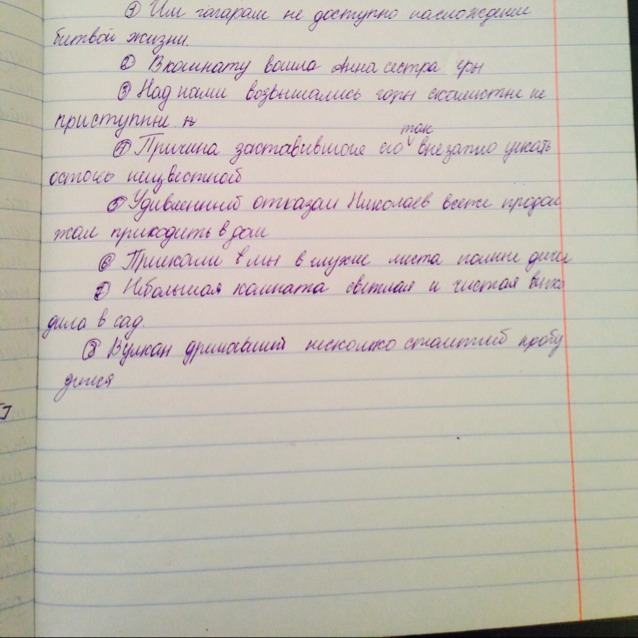 ① Им гагарам не доступно наслождение
битвой жизни.
② В комнату вошла Анна сестра
③ Над нами возвышались горы скалистые не
приступные.
④ Причина заставившая его так внезапно уехать
неизвестной
⑤ Удивленный отказам Николаев всеже продол
жал приходить в дом
⑥ мы в глухие места полные дичи
⑦ Небольшая комната светлая и чистая выхо
дила в сад.
⑧ Вулкан дримавший несколко столетий пробу
дился